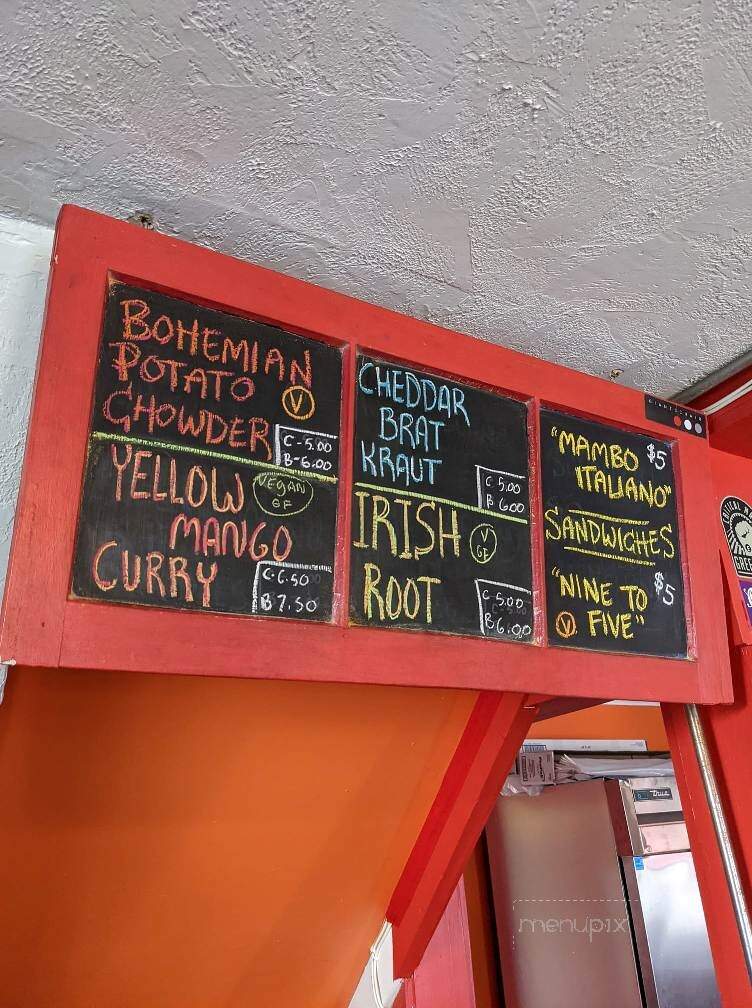 BOHEMIAN
POTATO
CHOWDER
V
C-5.00
B-6.00
YELLOW
MANGO
CURRY
VEGAN
GF
C-6.50
B7.50
CHEDDAR
BRAT
KRAUT
C 5.00
B 6.00
IRISH
ROOT
V
GF
C 5.00
B 6.00
"MAMBO
ITALIANO"
$5
SANDWICHES
"NINE TO
FIVE"
$5
V
True
menupix